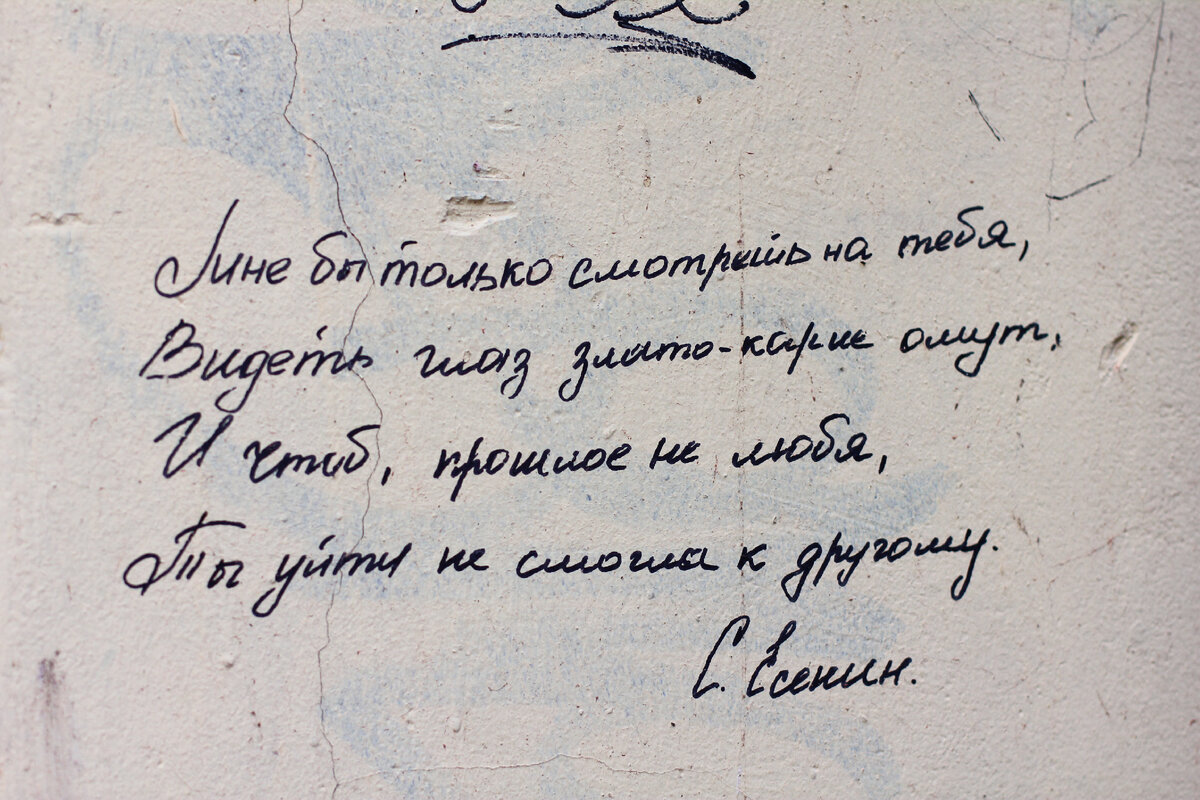 Мне бы только смотреть на тебя,
Видеть глаз злато-карие омут,
И чтоб, прошлое не любя,
Ты уйти не смогла к другому.
С. Есенин.